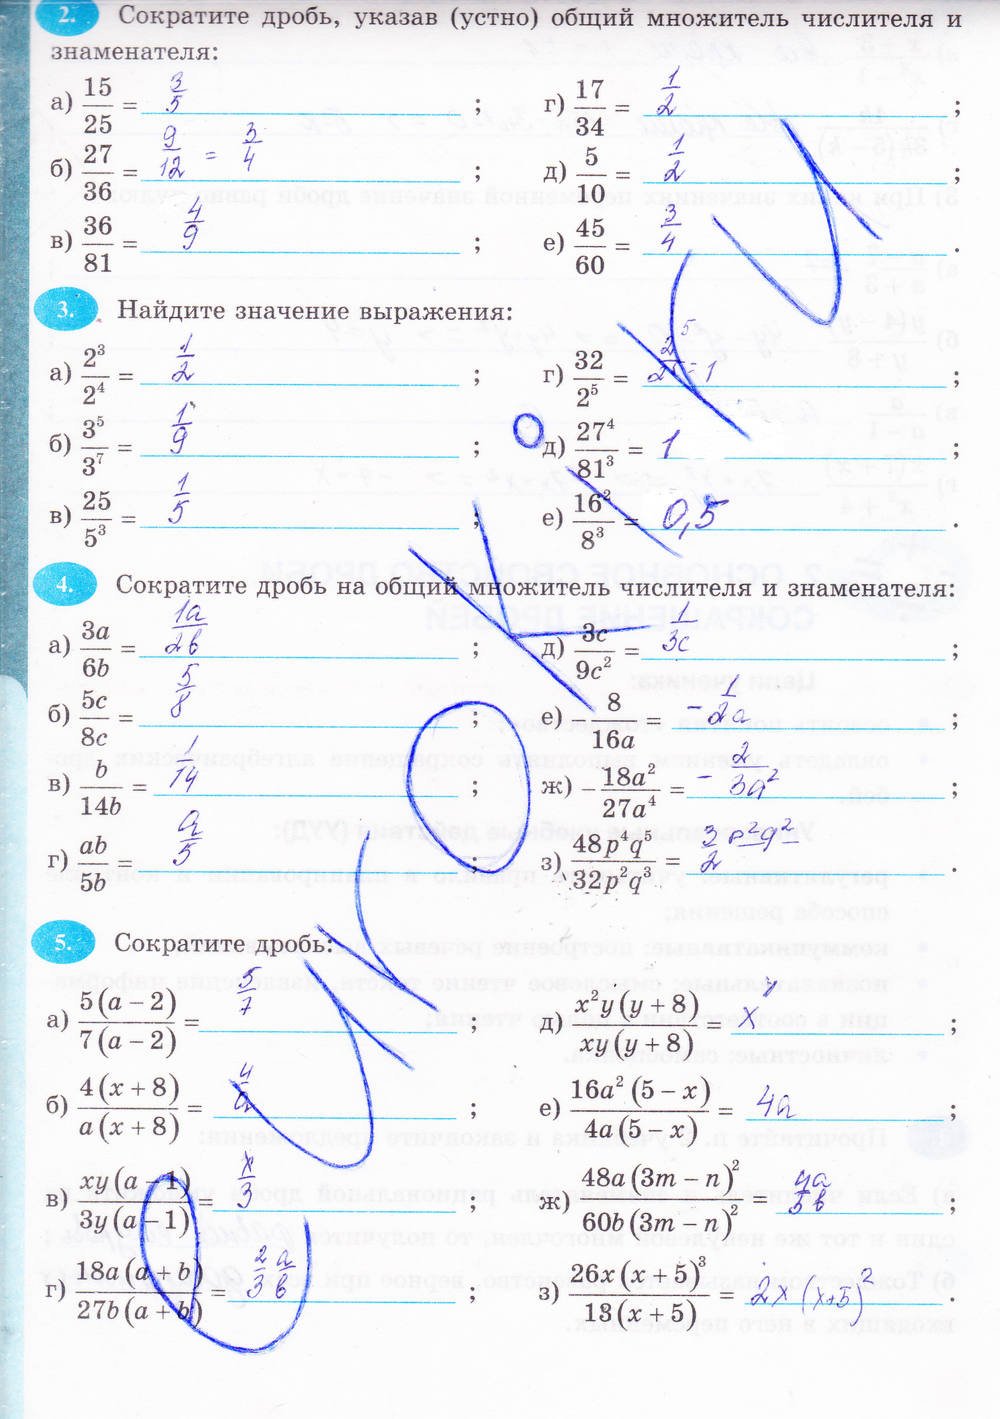 2. Сократите дробь, указав (устно) общий множитель числителя и
знаменателя:
а) 15/25 = 3/5 ;
г) 17/34 = 1/2 ;
б) 27/36 = 9/12 = 3/4 ;
д) 5/10 = 1/2 ;
в) 36/81 = 4/9 ;
е) 45/60 = 3/4 .
3. Найдите значение выражения:
а) 2³/2⁴ = 1/2 ;
г) 32/2⁵ = 2⁵/2⁵ = 1 ;
б) 3⁵/3⁷ = 1/9 ;
д) 27⁴/81³ = 1 ;
в) 25/5³ = 1/5 ;
е) 16²/8³ = 0,5 .
4. Сократите дробь на общий множитель числителя и знаменателя:
а) 3a/6b = 1a/2b ;
д) 3c/9c² = 1/3c ;
б) 5c/8c = 5/8 ;
е) 8/16a = -1/2a ;
в) b/14b = 1/14 ;
ж) -18a²/27a⁴ = -2/3a² ;
г) ab/5b = a/5 ;
з) 48p⁴q⁵/32p²q³ = 3p²q²/2 .
5. Сократите дробь:
а) 5(a-2)/7(a-2) = 5/7 ;
д) x²y(y+8)/xy(y+8) = x ;
б) 4(x+8)/a(x+8) = 4/a ;
е) 16a²(5-x)/4a(5-x) = 4a ;
в) xy(a-1)/3y(a-1) = x/3 ;
ж) 48a(3m-n)²/60b(3m-n)² = 4a/5b ;
г) 18a(a+b)/27b(a+b) = 2/3 a/b ;
з) 26x(x+5)³/13(x+5) = 2x(x+5)² .